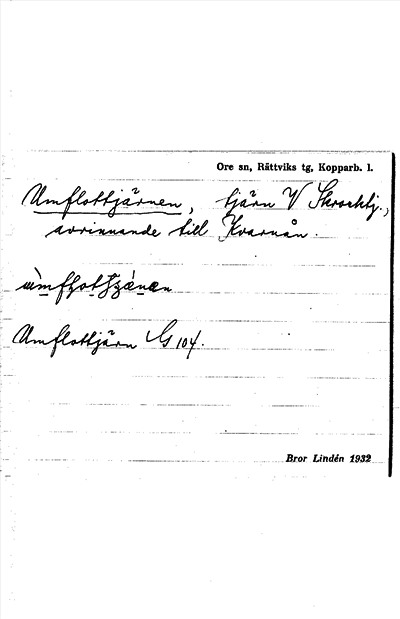 Ore sn, Rättviks tg, Kopparb. l.
Umflottjärnen, tjärn V
avrinnande till Kvarnån.
Umflottjärn G 104.
Bror Lindén 1932